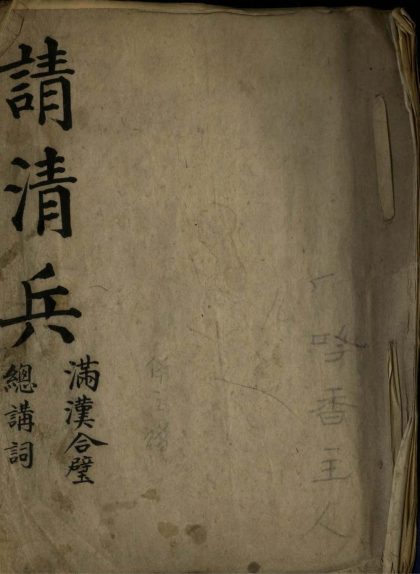 吟香主人
滿漢合璧
請清兵
總講詞